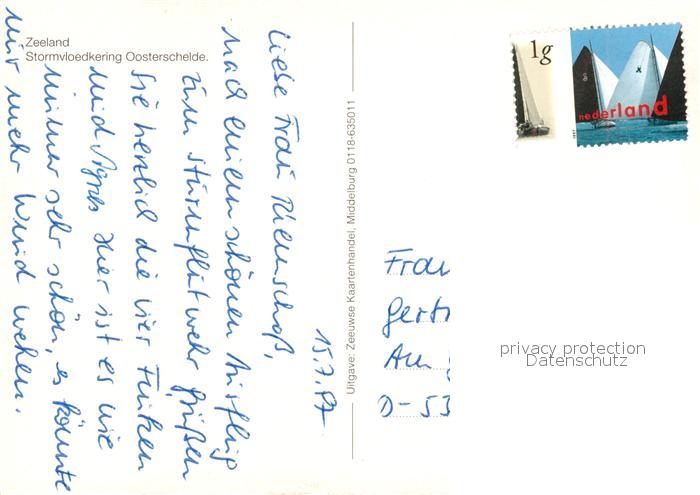 Zeeland
Stormvloedkering Oosterschelde.
15.7.97
Liebe Frau
nach einem schönen Ausflug
zum Sturmflutwehr grüßen
Sie herzlich die vier Funken
und Agnes. Hier ist es wie
immer sehr schön, es könnte
nur mehr Wind wehen.
Uitgave: Zeeuwse Kaartenhandel, Middelburg 0118-635011
1g
nederland
1997
Frau
Gertr
Am
D-53
privacy protection
Datenschutz